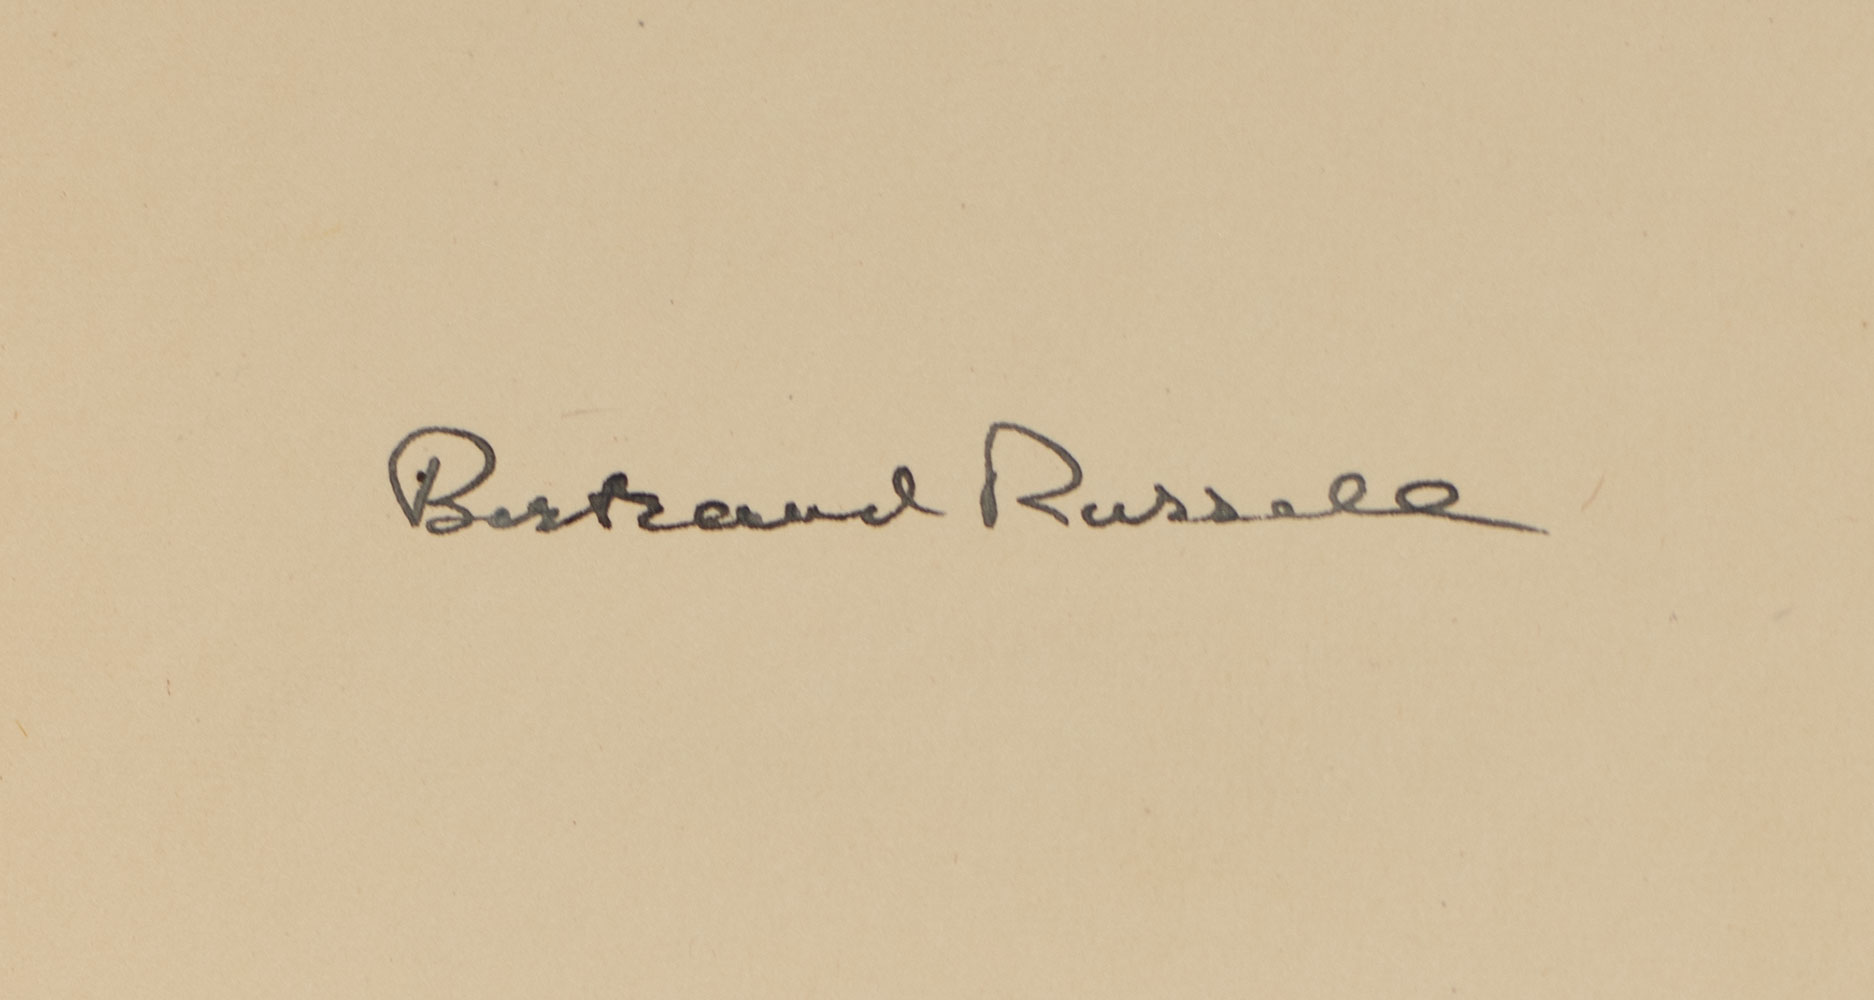 Bertrand Russell